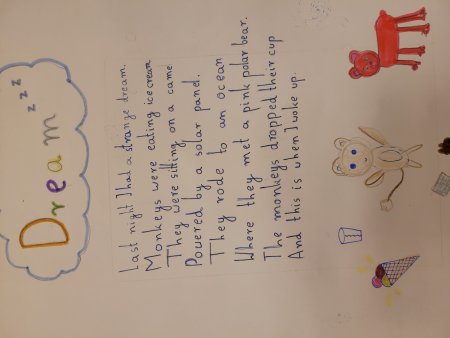 Dream zzz
Last night I had a strange dream.
Monkeys were eating ice cream.
They were sitting on a came
Powered by a solar panel.
They rode to an ocean
Where they met a pink polar bear.
The monkeys dropped their cup
And this is when I woke up.